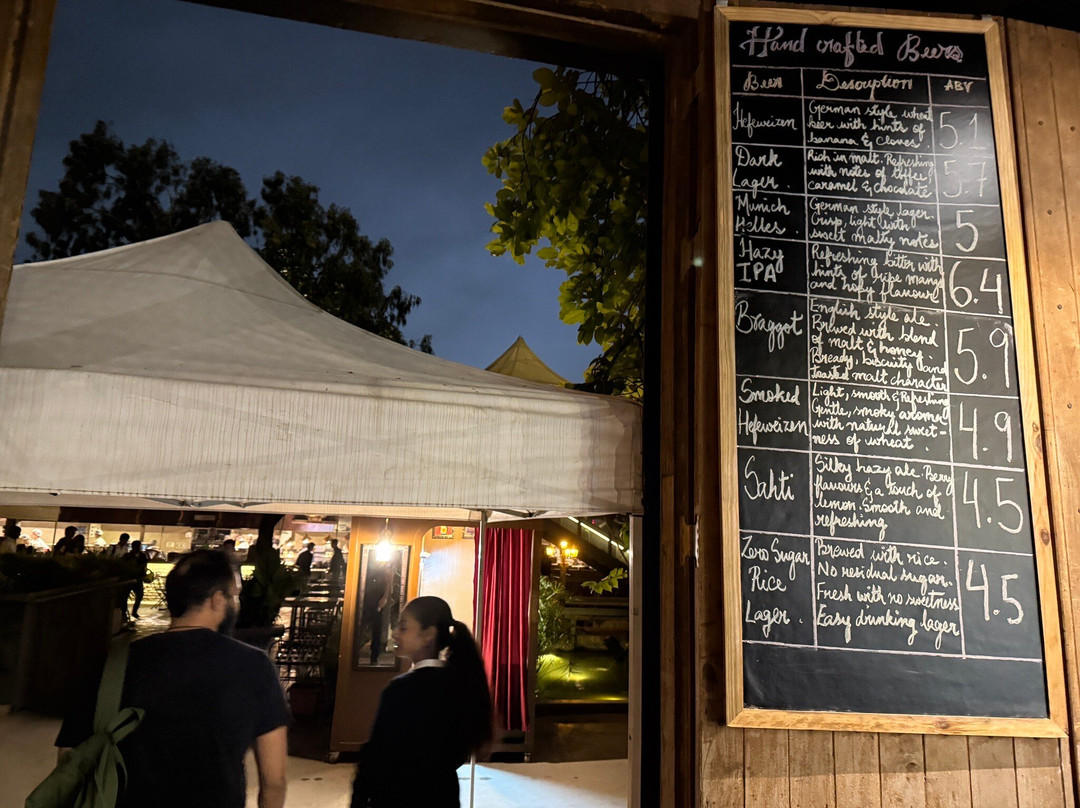 Hand crafted Beers
Beer Description ABV
Hefeweizen
German style wheat
beer with hints of
banana & cloves.
5.1
Dark
Lager.
Rich in malt. Refreshing
with notes of toffee,
caramel & chocolate
5.7
Munich
Helles.
German style lager.
Crisp, light with
sweet malty notes
5
Hazy
IPA
Refreshing bitter with
hints of ripe mango
and hopy flavours
6.4
Braggot
English style ale.
Brewed with blend
of malt & honey.
Bready, biscuity and
toasted malt character
5.9
Smoked
Hefeweizen
Light, smooth & Refreshing
Gentle, smoky aroma
with natural sweet-
ness of wheat.
4.9
Sahti
Silky hazy ale. Berry
flavours & a touch of
lemon. Smooth and
refreshing
4.5
Zero Sugar
Rice
Lager.
Brewed with rice.
No residual sugar.
Fresh with no sweetness
Easy drinking lager
4.5